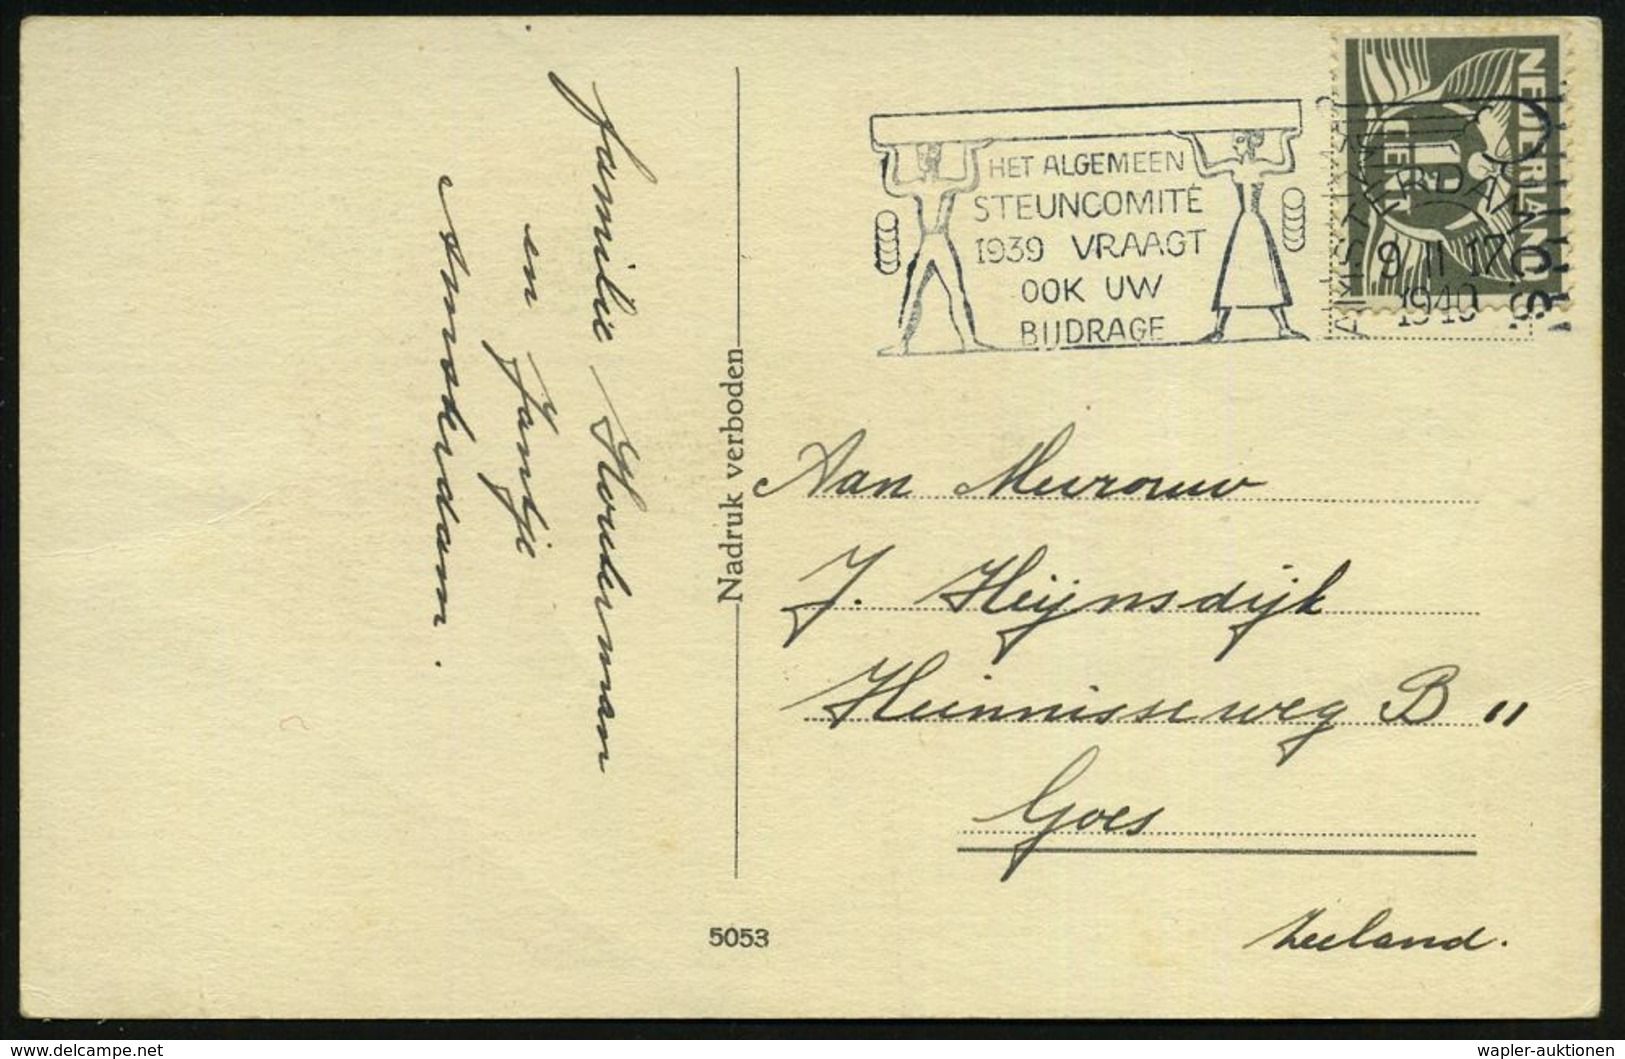 familie Houterman
en Jantje
Amsterdam.
Nadruk verboden
5053
HET ALGEMEEN
STEUNCOMITÉ
1939 VRAAGT
OOK UW
BIJDRAGE
NEDERLAND
CENT
AMSTERDAM
9 II 17
1940
Aan Mevrouw
J. Heijnsdijk
Heinnisseweg B 11
Goes
Zeeland.
www.delcampe.net
wapler-auktionen